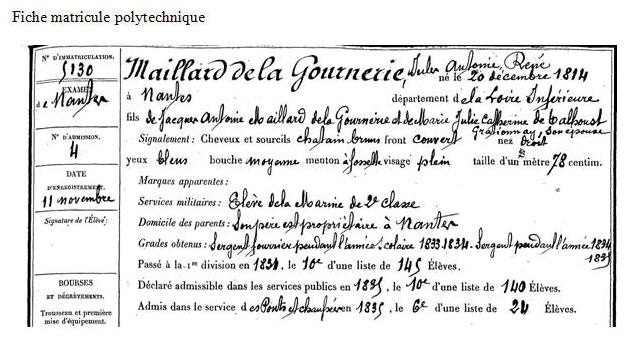 Fiche matricule polytechnique
N° D'IMMATRICULATION.
5130
EXAMEN
de Nantes
N° D'ADMISSION.
4
DATE
D'ENREGISTREMENT.
11 novembre
Signature de l'Élève:
BOURSES
ET DÉGRÈVEMENTS.
Trousseau et première
mise d'équipement.
Maillard de la Gournerie, Jules Antoine René
né le 20 décembre 1814
à Nantes département de la Loire Inférieure
fils de Jacques Antoine Maillard de la Gournerie et de Marie Julie Catherine de
son épouse
Signalement: Cheveux et sourcils chatain bruns front couvert nez droit
yeux bleus bouche moyenne menton à fossette visage plein taille d'un mètre 78 centim.
Marques apparentes:
Services militaires: Elève de la Marine de 2e classe
Domicile des parents: Son père est propriétaire à Nantes
Grades obtenus: Sergent fourrier pendant l'année scolaire 1833-1834 - Sergent pendant l'année 1834
1835
Passé à la 1re division en 1834, le 10e d'une liste de 145 Élèves.
Déclaré admissible dans les services publics en 1835, le 10e d'une liste de 140 Élèves.
Admis dans le service des Ponts et chaussées en 1835, le 6e d'une liste de 24 Élèves.